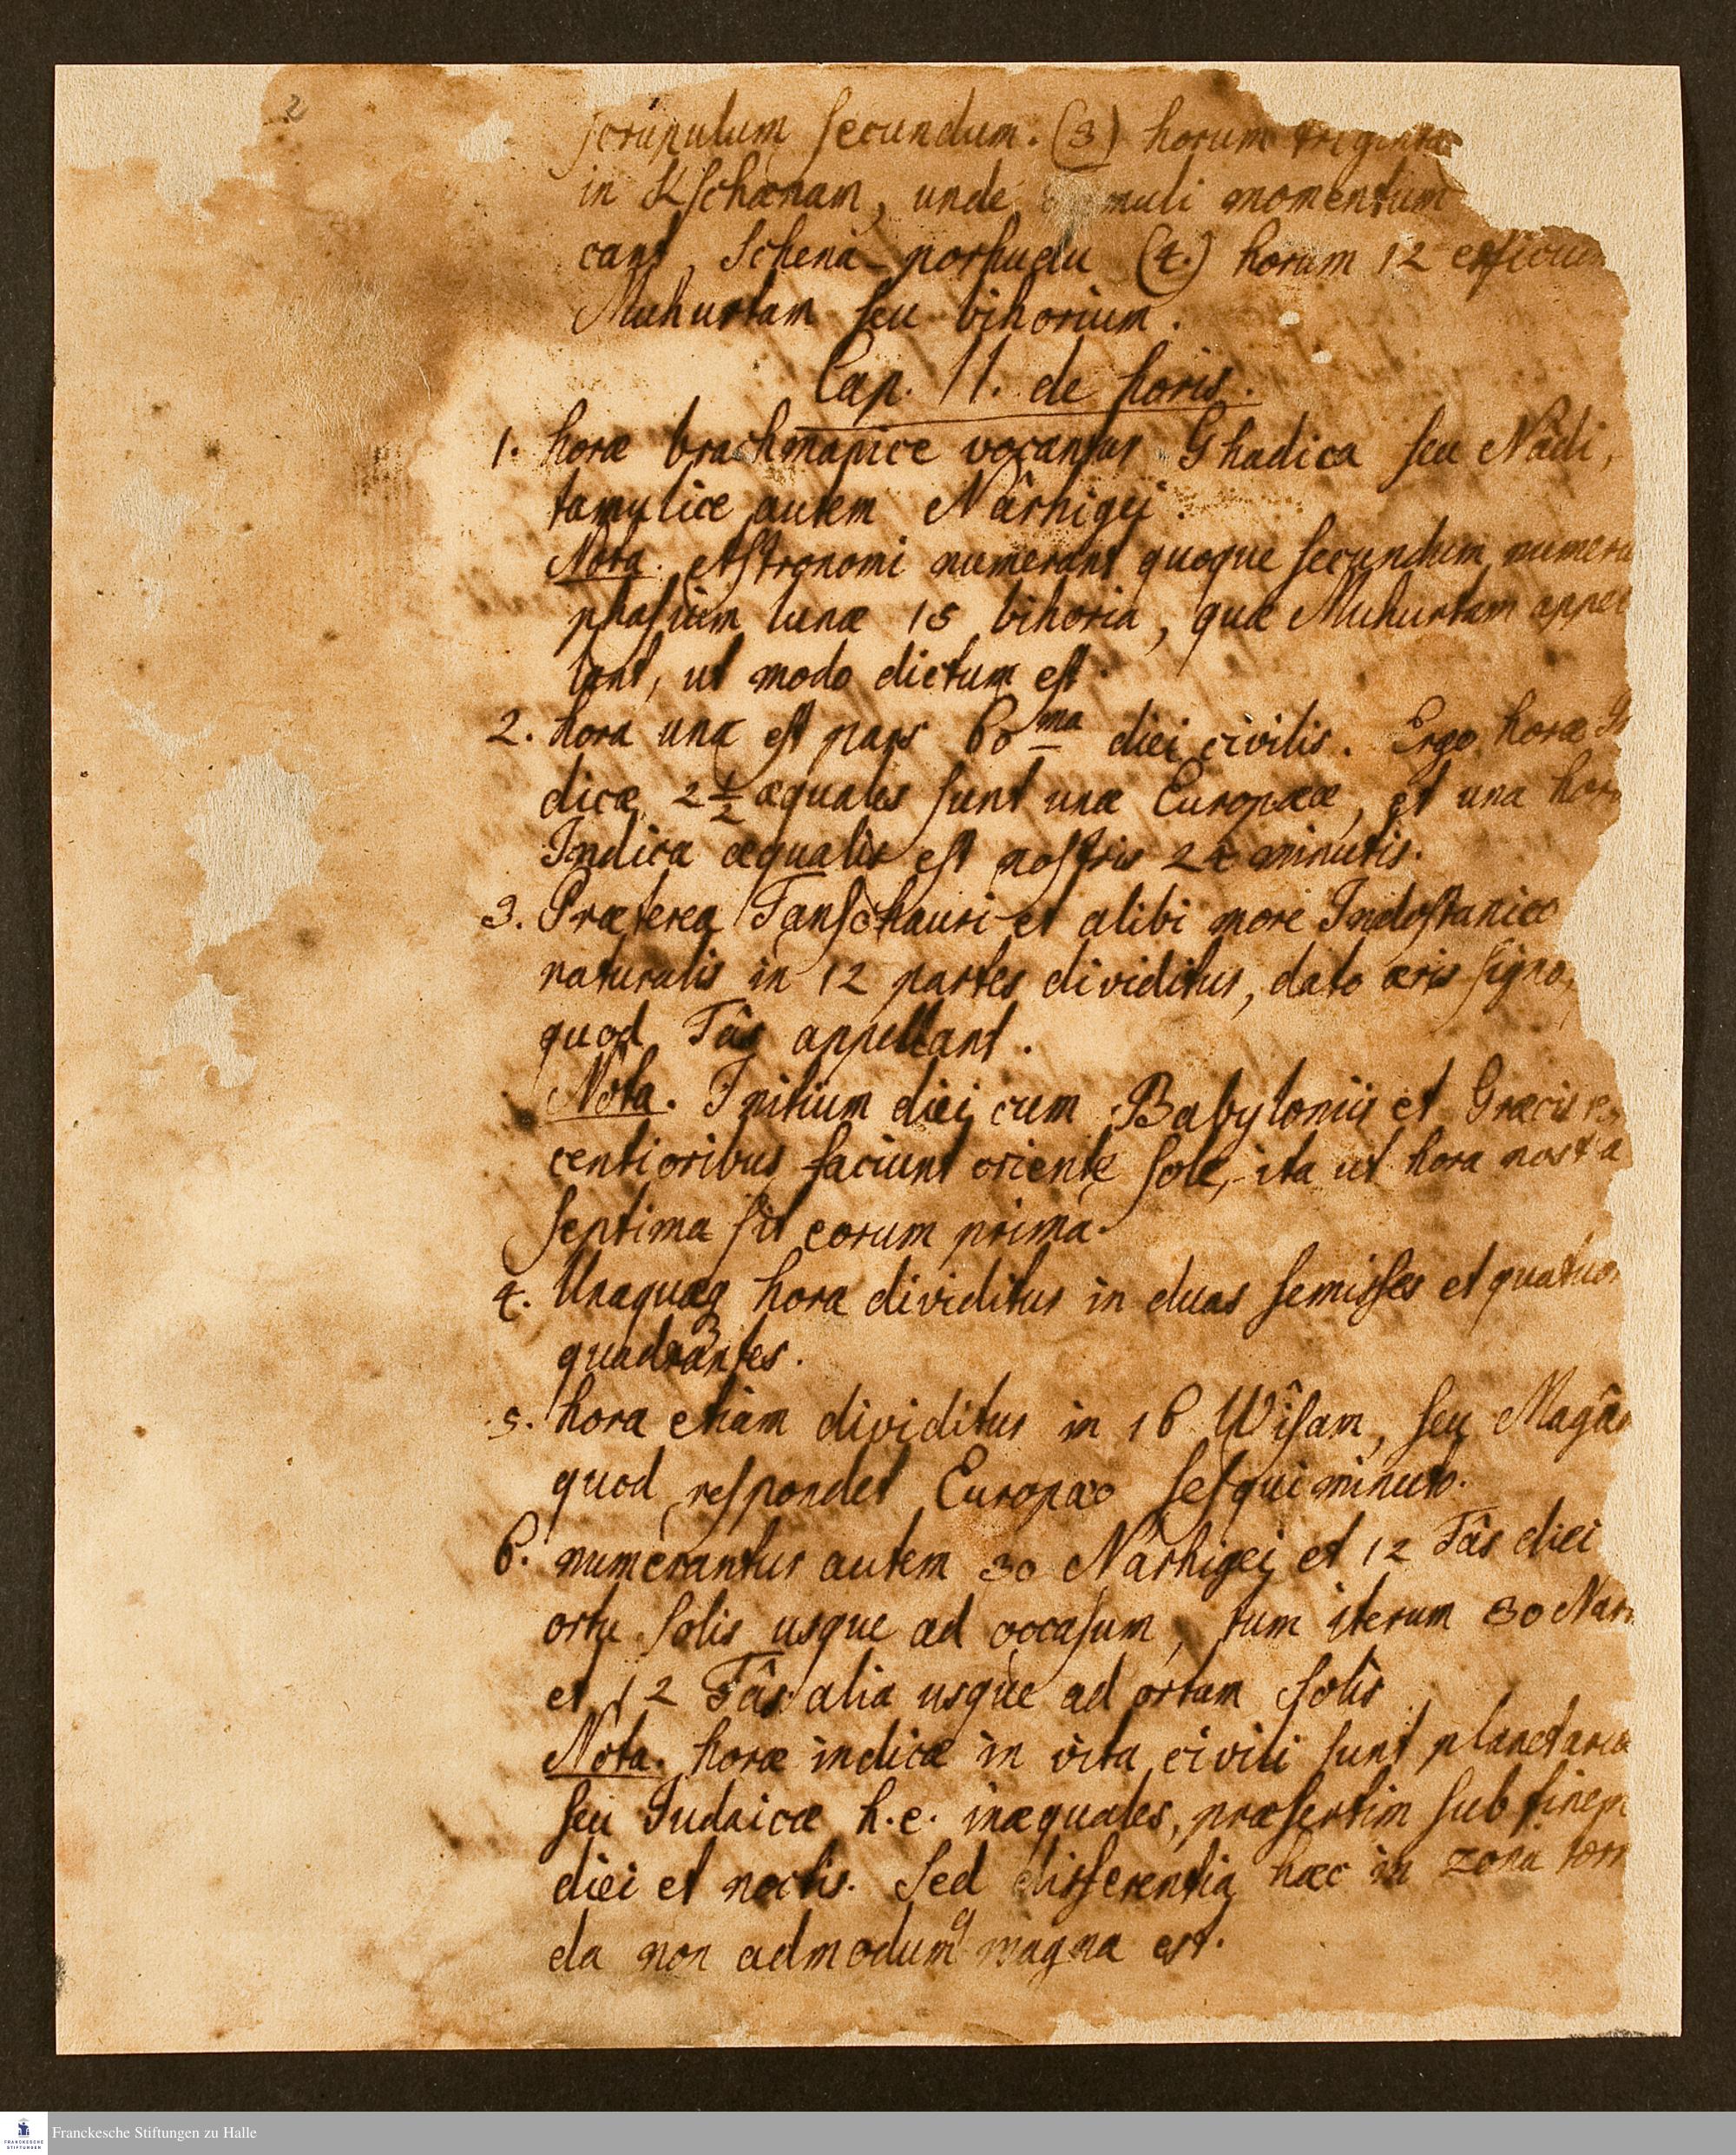 2
scrupulum secundum. (3) horum triginta
in Kschanam, unde muli momentum
cant, Schena-porhudu (4.) horum 12 efficiu
Muhurtam seu bihorium.
Cap. II. de horis.
1. horæ brachmanice vocantur Ghadica seu Nâdi,
tamulice autem Nârhigei.
Nota. Astronomi numerant quoque secundum numeru
phasium lunæ 15 bihoria, quæ Muhurtam appel
lant, ut modo dictum est.
2. hora una est pars 60ma diei civilis. Ergo horæ In
dicæ 2 1/2 æquales sunt unæ Europææ, et una hora
Indica æqualis est nostris 24 minutis.
3. Præterea Tanschauri et alibi more Indostanico
naturalis in 12 partes dividitur, dato æris signo,
quod Tâs appellant.
Nota. Initium diei cum Babyloniis et Græcis re
centioribus faciunt oriente sole, ita ut hora nostra
septima sit eorum prima.
4. Unaquæq3 hora dividitur in duas semisses et quatuor
quadrantes.
5. hora etiam dividitur in 16 Wîsam, seu Magâ
quod respondet Europæo sesquiminuto.
6. numerantur autem 30 Nârhigei et 12 Tâs diei
ortu solis usque ad occasum, tum iterum 30 Nar
et 12 Tâs alia usque ad ortum solis
Nota. horæ indicæ in vita civili sunt planetariæ
seu Judaicæ h.e. inæquales, præsertim sub finem
diei et noctis. Sed differentia hæc in zona torri
da non admodum magna est.
Franckesche Stiftungen zu Halle
FRANCKESCHE
STIFTUNGEN